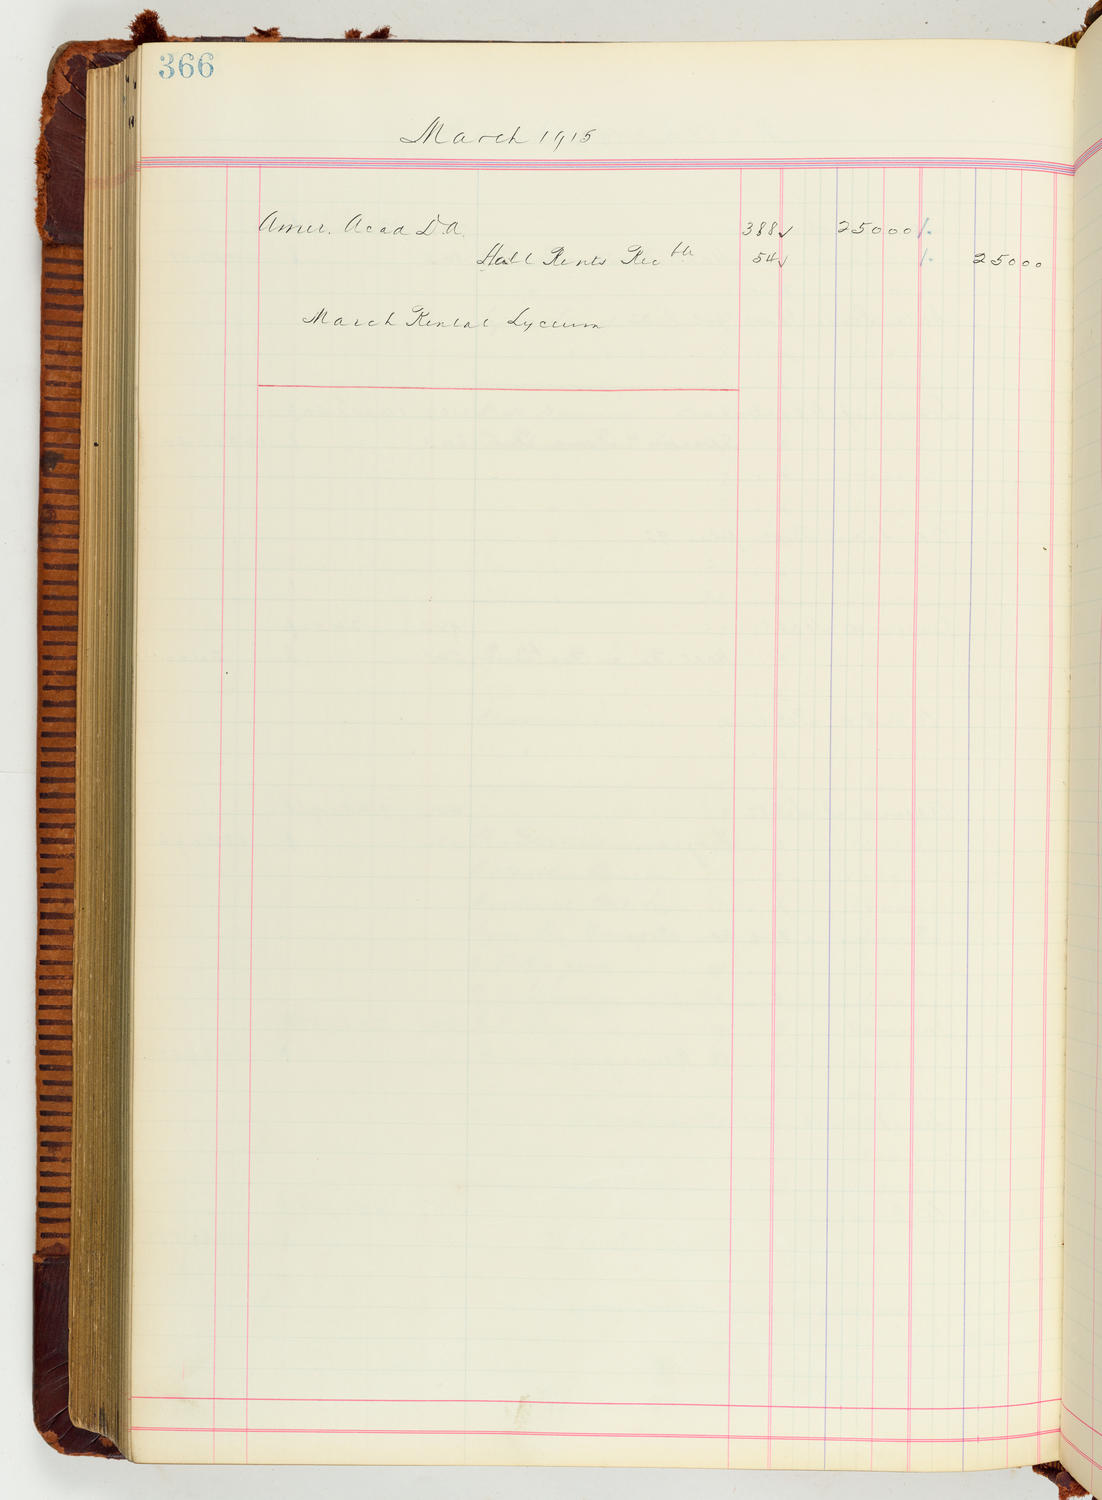 366
March 1915
Amer. Acad D.A. 388✓ 25000
Hall Rents Rec ble 54✓ 25000
March Rental Lyceum